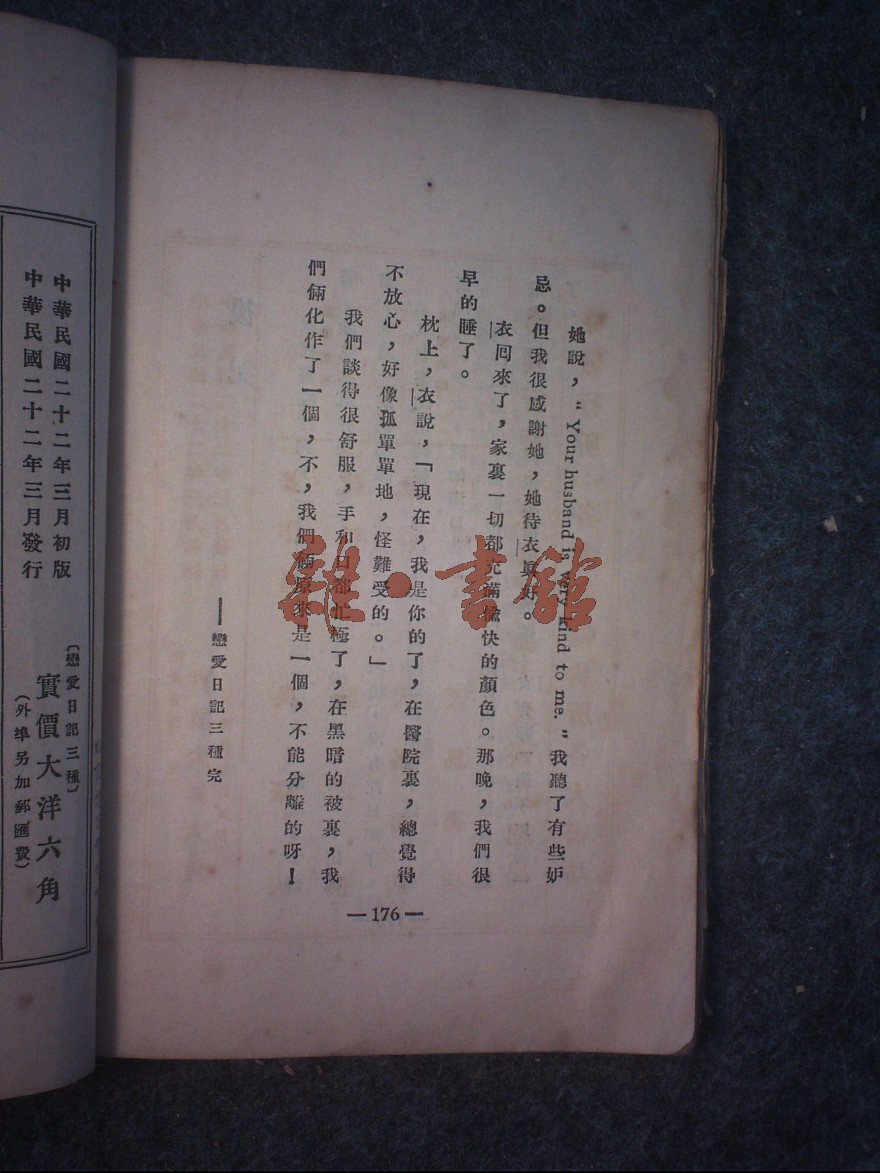 她說，“Your husband is very kind to me.”我聽了有些妒
忌。但我很感謝她，她待衣眞好。
衣囘來了，家裏一切都充滿愉快的顏色。那晚，我們很
早的睡了。
枕上，衣說，「現在，我是你的了，在醫院裏，總覺得
不放心，好像孤單單地，怪難受的。」
我們談得很舒服，手和口都忙極了，在黑暗的被裏，我
們倆化作了一個，不，我們倆原來是一個，不能分離的呀！
——戀愛日記三種完
—176—
中華民國二十二年三月初版
中華民國二十二年三月發行
〔戀愛日記三種〕
實價大洋六角
（外埠另加郵匯費）
雜·書館